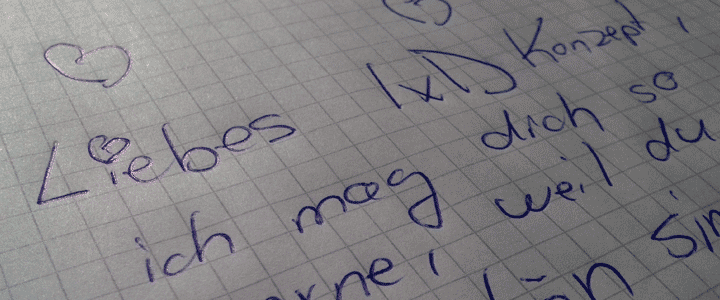 Liebes IxD Konzept,
ich mag dich so
weil du